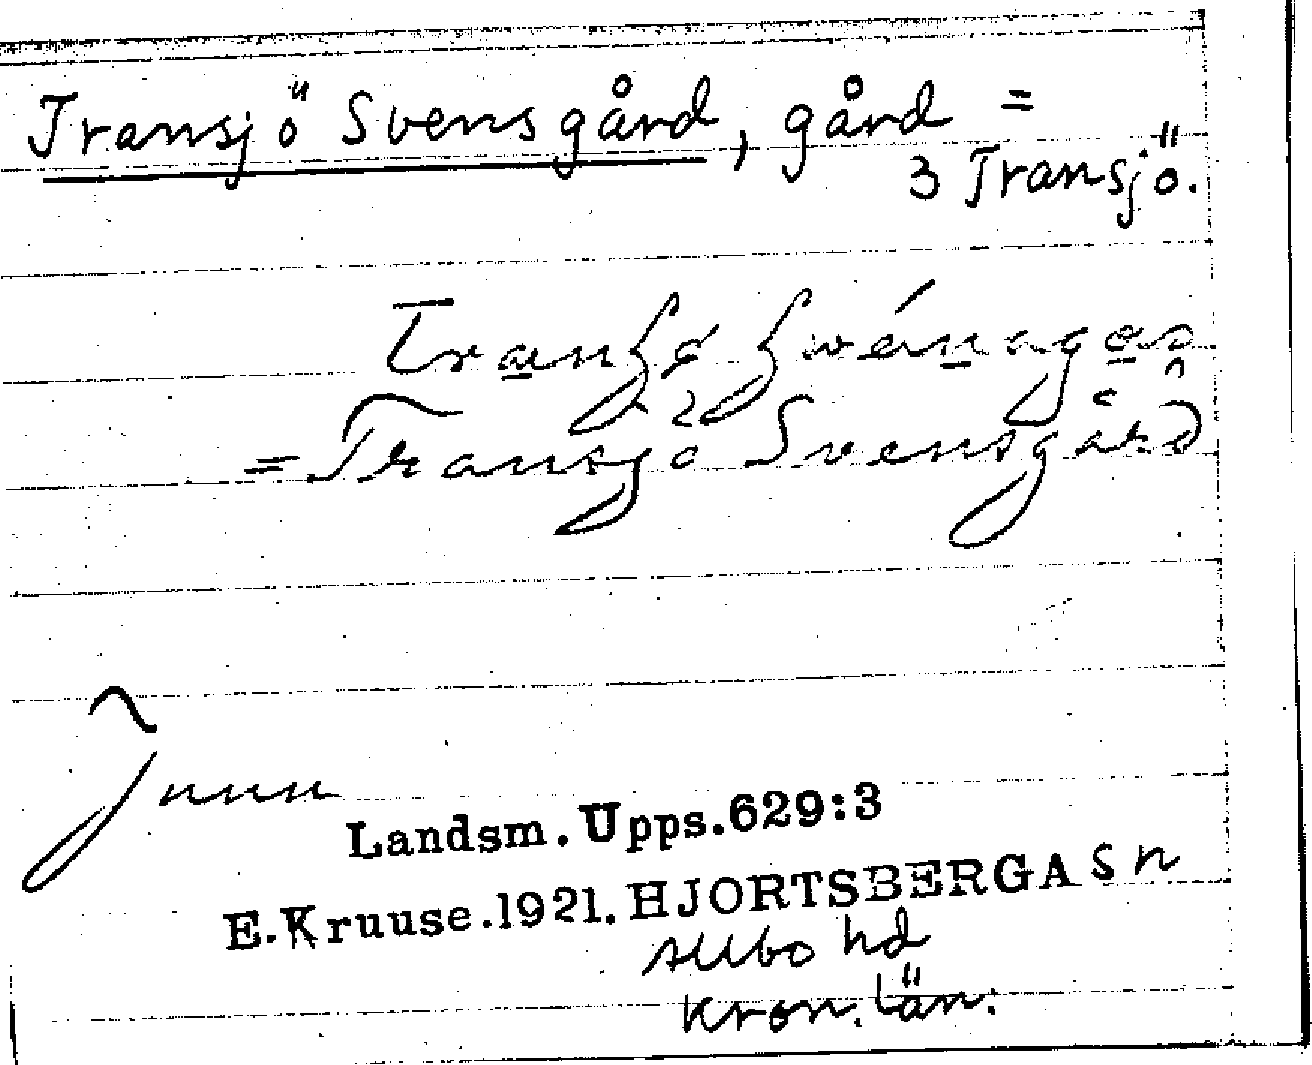 Transjö Svensgård, gård =
3 Transjö.
= Transjö Svensgård
Landsm. Upps. 629:3
E. Kruuse. 1921. HJORTSBERGA sn
Allbo hd
Kron. län.